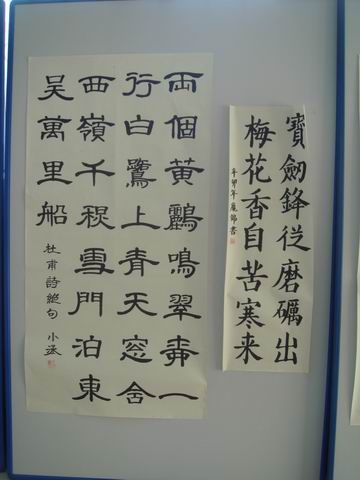 寶劔鋒從磨礪出
梅花香自苦寒来
辛卯年書
兩個黄鸝鳴翠桺一
行白鷺上青天窓含
西嶺千秋雪門泊東
吴萬里船
杜甫詩絕句 小丞